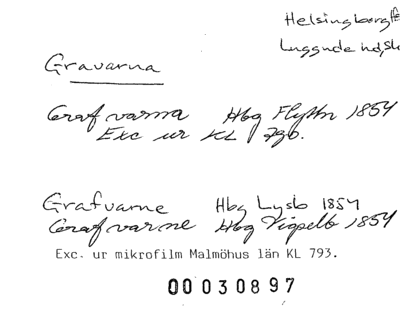 Helsingborg
Luggude hd, Sk
Gravarna
Grafvarna Hbg Flyttn 1854
Exc ur KL 790.
Grafvarne Hbg Lysb 1854
Grafvarne Hbg Vigselb 1854
Exc. ur mikrofilm Malmöhus län KL 793.
00030897